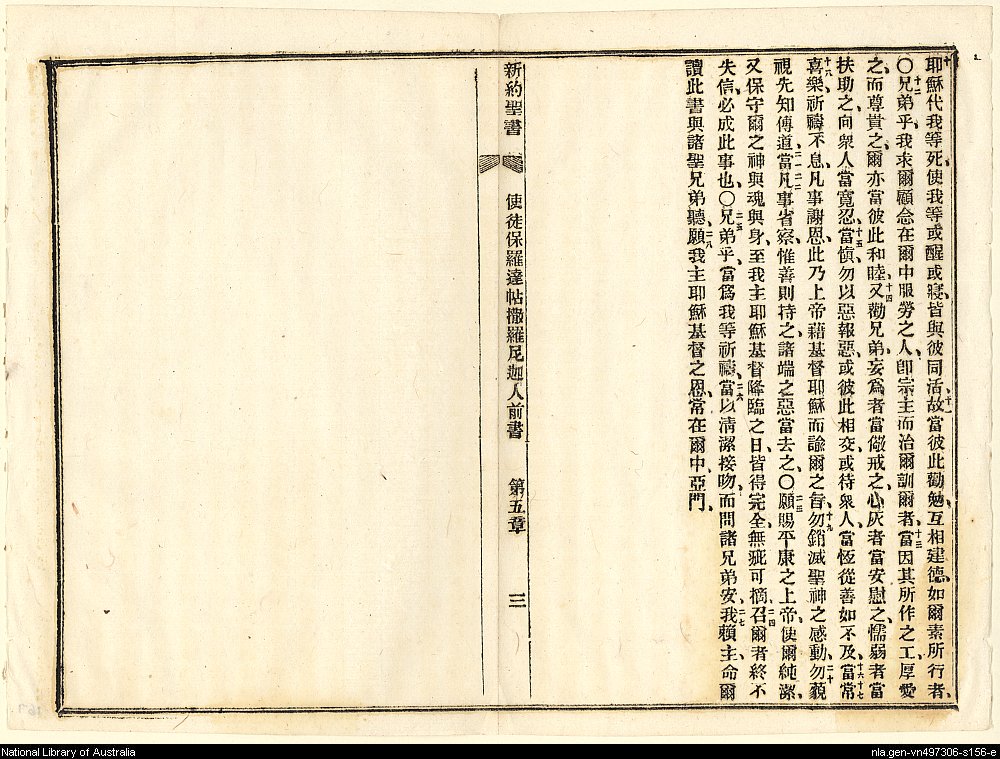 十耶穌代我等死、使我等或醒或寢、皆與彼同活、十一故當彼此勸勉、互相建德、如爾素所行者、
〇十二兄弟乎、我求爾顧念在爾中服勞之人、卽宗主而治爾訓爾者、十三當因其所作之工、厚愛
之、而尊貴之、爾亦當彼此和睦、十四又勸兄弟、妄爲者當儆戒之、心灰者當安慰之、懦弱者當
扶助之、向衆人當寬忍、十五當愼勿以惡報惡、或彼此相交、或待衆人、當恆從善如不及、十六當常十七
喜樂、祈禱不息、十八凡事謝恩、此乃上帝藉基督耶穌而諭爾之旨、十九勿銷滅聖神之感動、二十勿藐
視先知傳道、二一當凡事省察、二二惟善則持之、諸端之惡當去之、〇二三願賜平康之上帝、使爾純潔、
又保守爾之神與魂與身、至我主耶穌基督降臨之日、皆得完全無疵可摘、二四召爾者終不
失信、必成此事也、〇二五兄弟乎、當爲我等祈禱、二六當以淸潔接吻、而問諸兄弟安、二七我賴主命爾
讀此書與諸聖兄弟聽、二八願我主耶穌基督之恩、常在爾中、亞門、
新約聖書 使徒保羅達帖撒羅尼迦人前書 第五章 三
National Library of Australia
nla.gen-vn497306-s156-e